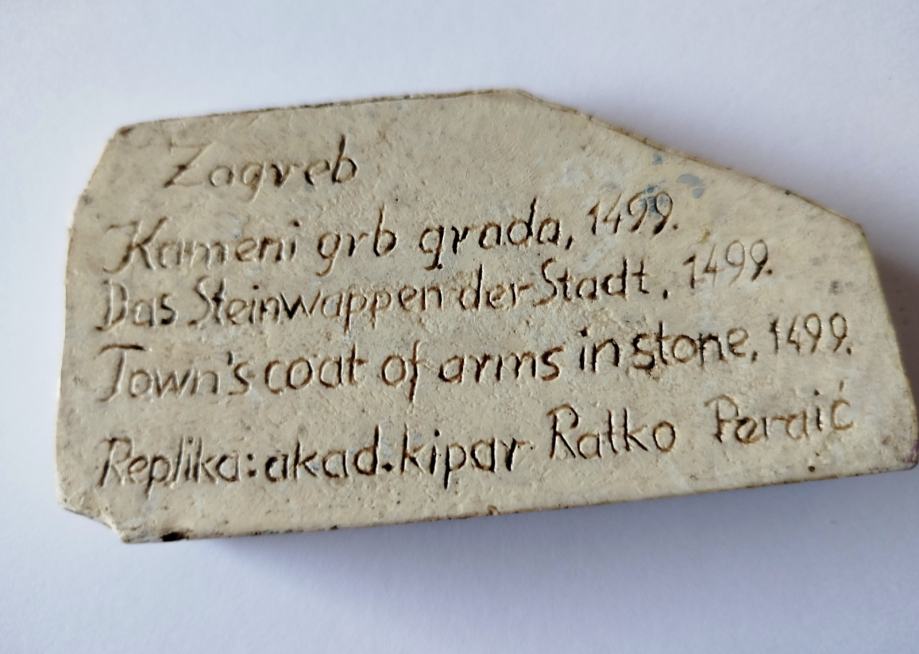 Zagreb
Kameni grb grada, 1499.
Das Steinwappen der Stadt, 1499.
Town's coat of arms in stone, 1499.
Replika: akad. kipar Ratko Peraić